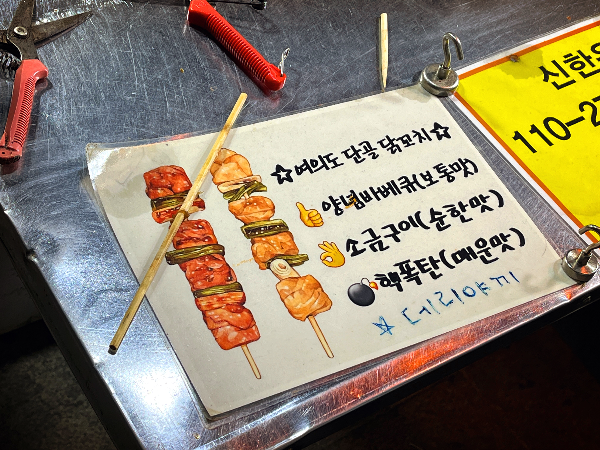 ☆여의도 단골 닭꼬치☆
양념바베큐(보통맛)
소금구이(순한맛)
핵폭탄(매운맛)
☆데리야끼
신한
110-2